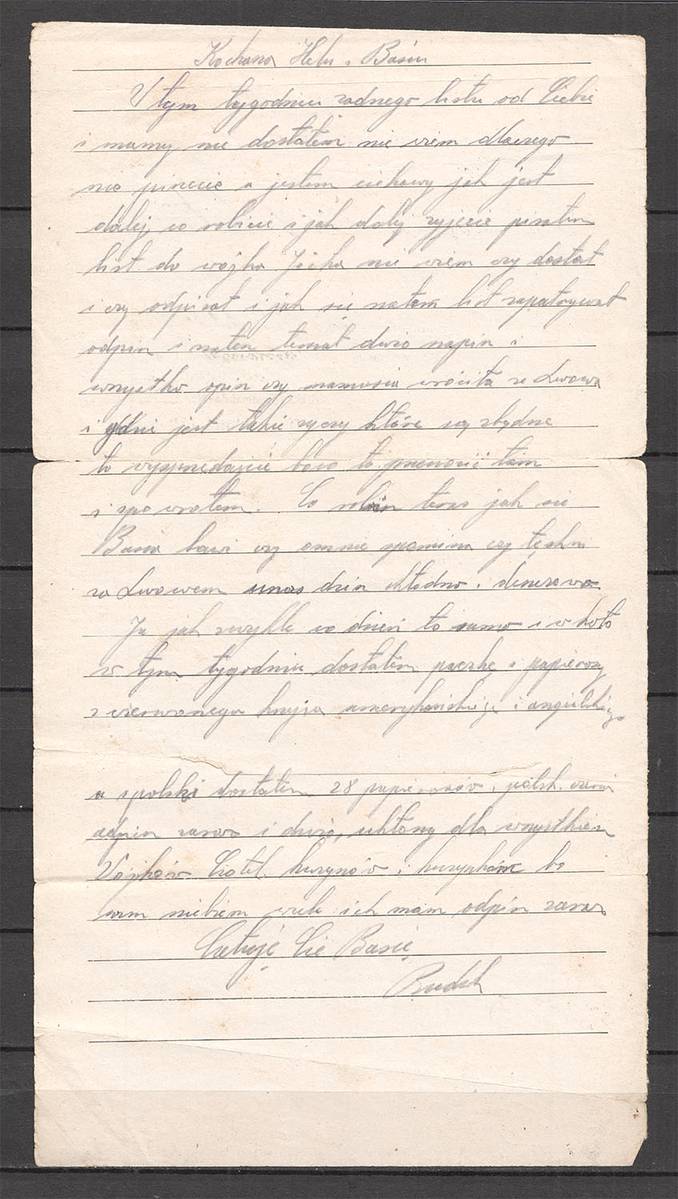 Kochana Helu i Basiu
W tym tygodniu zadnego listu od Ciebie
i mamy nie dostałem nie wiem dlaczego
nie piszecie a jestem ciekawy jak jest
dalej co robicie i jak dalej zyjecie pisałem
list do wojka nie wiem czy dostał
i czy odpisał i jak się na ten list zapatrywał
odpisz i na ten temat dużo napisz i
wszystko opisz czy mamusia wróciła ze Lwowa
i gdzie jest takie rzeczy które są zbędne
to wysprzedajcie bo to przenosić tam
i spowrotem. Co robisz teraz jak sie
Basia bawi czy omnie spomina czy tęskni
za Lwowem unas dziś chłodno i deszczowo
Ja jak zwykle co dzień to samo i w koło
w tym tygodniu dostałem paczkę i papierosy
z czerwonego krzyża amerykańskiego i angielskiego
a spolski dostałem 28 papierosów
odpisz zaraz i dużo, ukłony dla wszystkich
Wójków Ciotek kuzynów i kuzynków bo
sam niewiem wiele ich mam odpisz zaraz
Całuję Cię Basię
Rudek